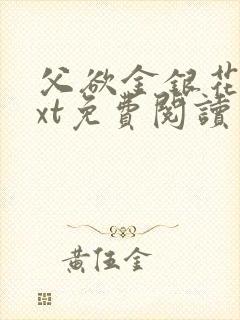 父欲金銀花
xt免費閱讀
黃伍金